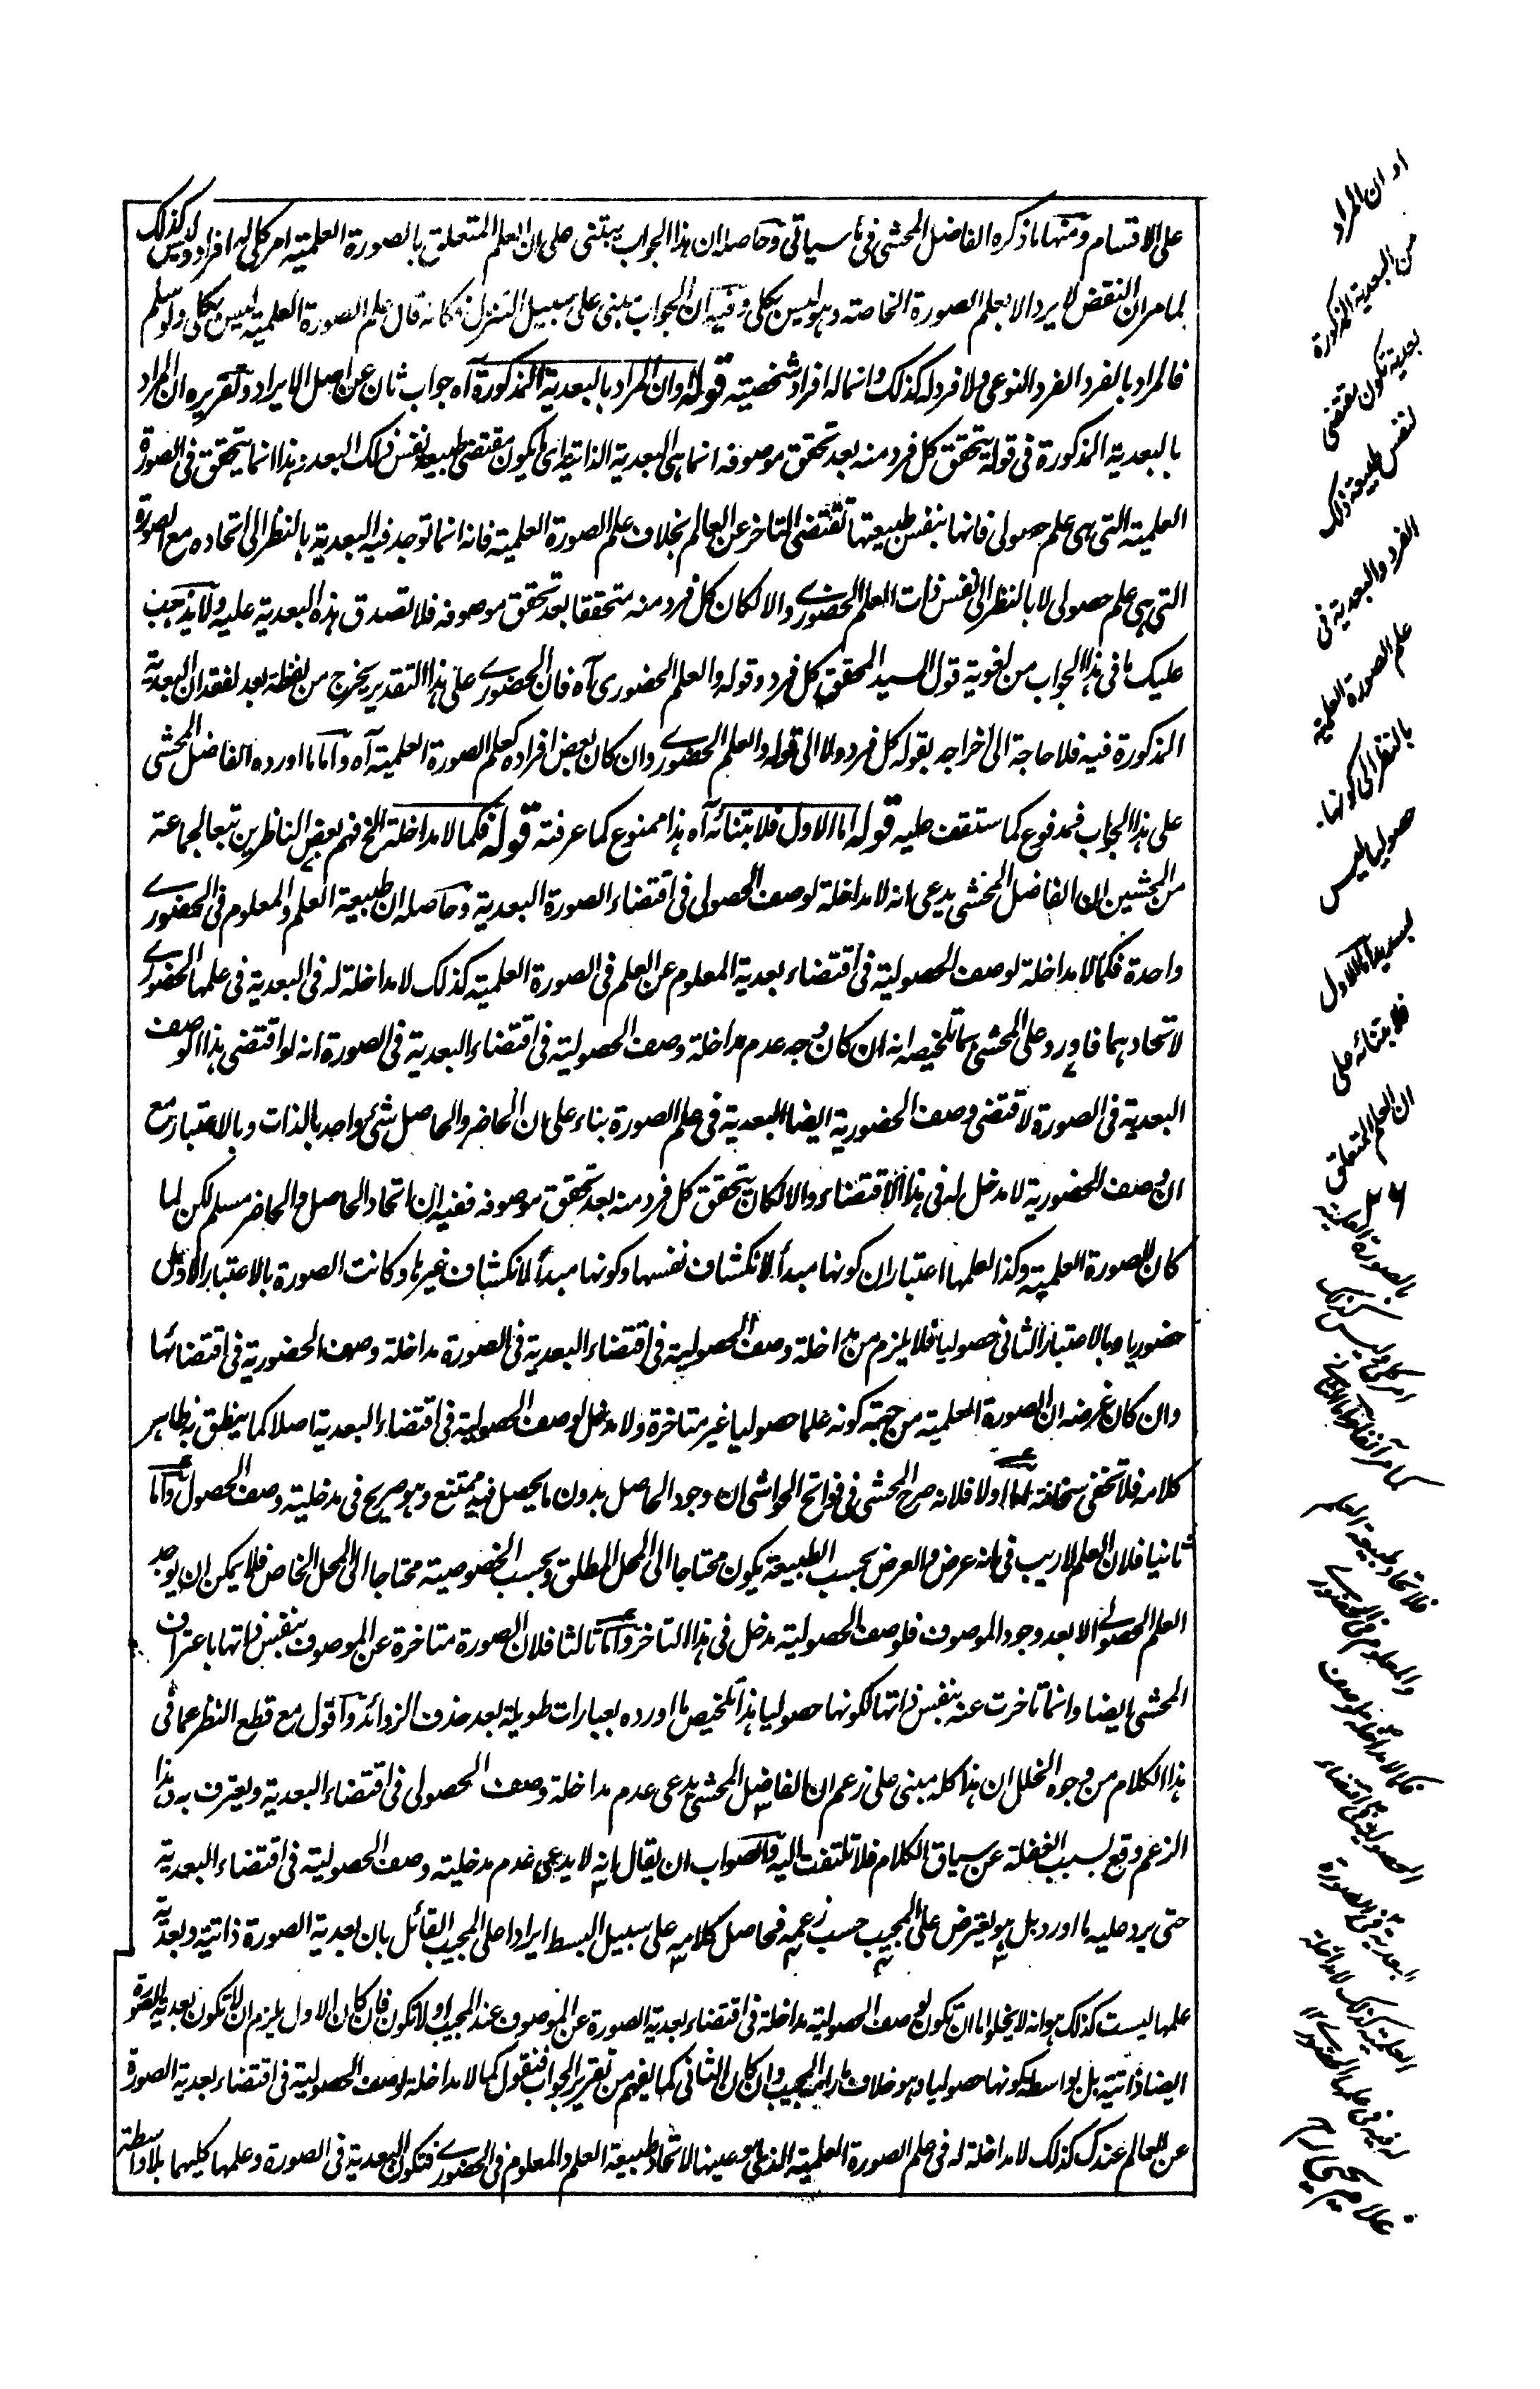 على الاقسام ومنها ما ذكره الفاضل المحشى فى ما سياتى وحاصله ان هذا الجواب يبتنى على ان العلم المتعلق بالصورة العلمية امر كلى له افراد وليس كذلك
لما مر ان النقض لا يرد الا بعلم الصورة الخاصة وهو ليس بكلى وفيه ان الجواب مبنى على سبيل التنزل فكانه قال علم الصورة العلمية ليس بكلى ولو سلم
فالمراد بالفرد الفرد النوعى ولا فرد له كذلك وانما له افراد شخصية قوله او ان المراد بالبعدية المذكورة آه جواب ثان عن اصل الايراد وتقريره ان المراد
بالبعدية المذكورة فى قوله يتحقق كل فرد منه بعد تحقق موصوفه انما هى البعدية الذاتية اى ما يكون مقتضى طبيعة نفس ذلك البعد وهذا انما يتحقق فى الصورة
العلمية التى هى علم حصولى فانها بنفس طبيعتها تقتضى التاخر عن العالم بخلاف علم الصورة العلمية فانه انما توجد فيه البعدية بالنظر الى اتحاده مع الصورة
التى هى علم حصولى لا بالنظر الى نفس ذات العلم الحضورى والا لكان كل فرد منه متحققا بعد تحقق موصوفه فلا تصدق هذه البعدية عليه ولا يذهب
عليك ما فى هذا الجواب من لغوية قول السيد المحقق كل فرد وقوله والعلم الحضورى آه فان الحضورى على هذا التقدير يخرج من لفظة بعد لفقدان البعدية
المذكورة فيه فلا حاجة الى اخراجه بقوله كل فرد ولا الى قوله والعلم الحضورى وان كان بعض افراده كعلم الصورة العلمية آه واما ما اورده الفاضل المحشى
على هذا الجواب فمدفوع كما ستقف عليه قوله اما الاول فلابتنائه آه هذا ممنوع كما عرفته قوله فكما لا مداخلة الخ فهم بعض الناظرين تبعا لجماعة
من المحشين ان الفاضل المحشى يدعى انه لا مداخلة لوصف الحصولى فى اقتضاء الصورة البعدية وحاصله ان طبيعة العلم والمعلوم فى الحضورى
واحدة فكما لا مداخلة لوصف الحصولية فى اقتضاء بعدية المعلوم عن العلم فى الصورة العلمية كذلك لا مداخلة له فى البعدية فى علمها الحضورى
لاتحادهما فاورد على المحشى بما تلخيصه انه ان كان وجه عدم مداخلة وصف الحصولية فى اقتضاء البعدية فى الصورة انه لو اقتضى هذا الوصف
البعدية فى الصورة لاقتضى وصف الحضورية ايضا البعدية فى علم الصورة بناء على ان الحاضر والحاصل شئ واحد بالذات وبالاعتبار مع
ان وصف الحضورية لا مدخل له فى هذا الاقتضاء والا لكان يتحقق كل فرد منه بعد تحقق موصوفه ففيه ان اتحاد الحاصل والحاضر مسلم لكن لما
كان للصورة العلمية وكذا لعلمها اعتباران كونها مبدأ لانكشاف نفسها وكونها مبدأ لانكشاف غيرها وكانت الصورة بالاعتبار الاول
حضوريا وبالاعتبار الثانى حصوليا فلا يلزم من مداخلة وصف الحصولية فى اقتضاء البعدية فى الصورة مداخلة وصف الحضورية فى اقتضائها
وان كان غرضه ان الصورة العلمية من جهة كونه علما حصوليا غير متاخرة ولا مدخل لوصف الحصولية فى اقتضاء البعدية اصلا كما ينطق به ظاهر
كلامه فلا تخفى سخافته اما اولا فلانه صرح المحشى فى فواتح الحواشى ان وجود الحاصل بدون ما يحصل فيه ممتنع وهو صريح فى مدخلية وصف الحصول واما
ثانيا فلان العلم لا ريب فى انه عرض والعرض بحسب الطبيعة يكون محتاجا الى المحل المطلق وبحسب الخصوصية محتاجا الى المحل الخاص فلا يمكن ان يوجد
العلم الحصولى الا بعد وجود الموصوف فلوصف الحصولية مدخل فى هذا التاخر واما ثالثا فلان الصورة متاخرة عن الموصوف بنفس ذاتها باعتراف
المحشى ايضا وانما تاخرت عنه بنفس ذاتها لكونها حصوليا هذا تلخيص ما اورده بعبارات طويلة بعد حذف الزوائد واقول مع قطع النظر عما فى
هذا الكلام من وجوه الخلل ان هذا كله مبنى على زعم ان الفاضل المحشى يدعى عدم مداخلة وصف الحصولى فى اقتضاء البعدية ويعترف به وهذا
الزعم وقع بسبب الغفلة عن سياق الكلام فلا تلتفت اليه والصواب ان يقال انه لا يدعى عدم مدخلية وصف الحصولية فى اقتضاء البعدية
حتى يرد عليه ما اورد بل هو يعترض على المجيب حسب زعمه فحاصل كلامه على سبيل البسط ايرادا على المجيب القائل بان بعدية الصورة ذاتية وبعدية
علمها ليست كذلك هو انه لا يخلو اما ان تكون لوصف الحصولية مداخلة فى اقتضاء بعدية الصورة عن الموصوف عند المجيب او لا تكون فان كان الاول يلزم ان لا تكون بعدية الصورة
ايضا ذاتية بل بواسطة كونها حصوليا وهو خلاف ما رامه المجيب وان كان الثانى كما يفهم من تقرير الجواب فنقول كما لا مداخلة لوصف الحصولية فى اقتضاء بعدية الصورة
عن العالم عندك كذلك لا مداخلة له فى علم الصورة العلمية الذى هو عينها لاتحاد طبيعة العلم والمعلوم فى الحضورى فتكون البعدية فى الصورة وعلمها كليهما بلا واسطة
او ان المراد
من البعدية المذكورة
بعدية تكون بمقتضى
نفس طبيعة ذلك
الفرد والبعدية فى
علم الصورة العلمية
بالنظر الى كونها
حصوليا ليس
بسديد اما الاول
فلابتنائه على
ان العلم المتعلق
بالصورة العلمية
امر كلى وليس كذلك
كما مر آنفا
فلاتحاد طبيعة العلم
والمعلوم فى الحضورى
فكما لا مداخلة لوصف
الحصولية فى اقتضاء
البعدية فى الصورة
العلمية كذلك لا مداخلة
له فيه فى علمها الحضورى
غلام يحيى